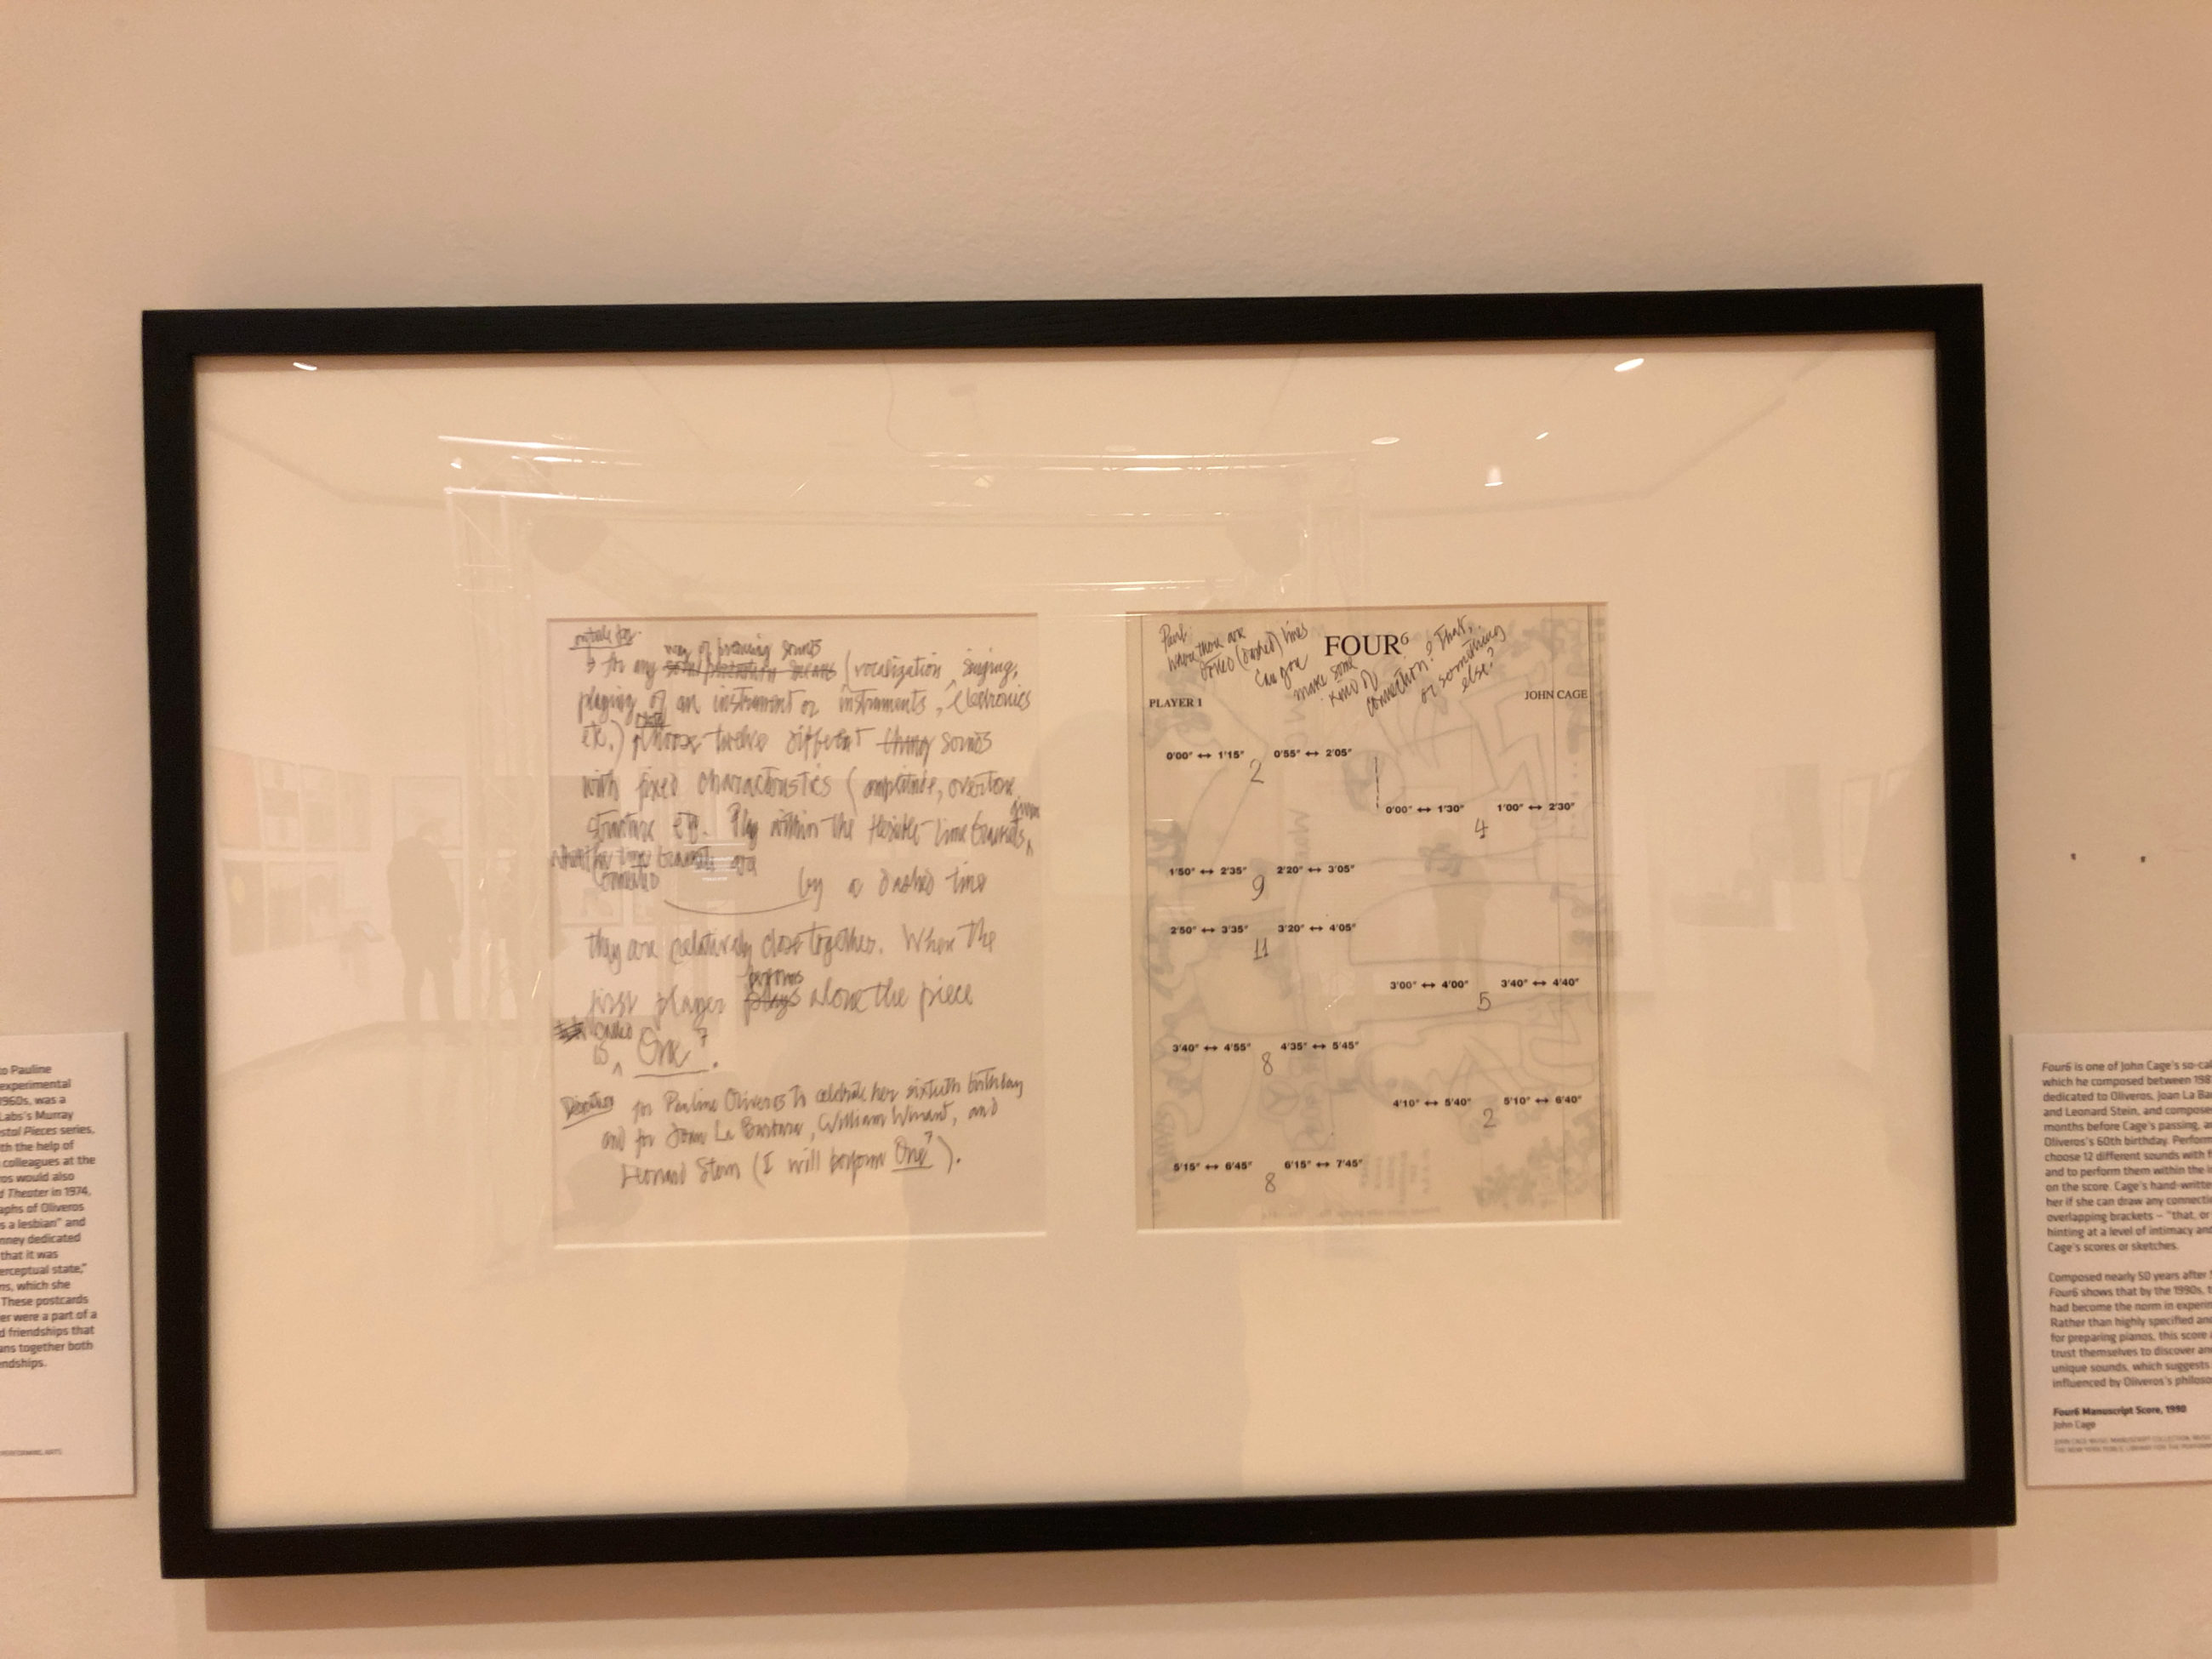 to Pauline
experimental
1960s, was a
Labs's Murray
stol Pieces series,
th the help of
colleagues at the
ros would also
d Theater in 1974,
aphs of Oliveros
s a lesbian" and
nney dedicated
that it was
erceptual state,"
ns, which she
These postcards
er were a part of a
d friendships that
ans together both
endships.
PERFORMING ARTS
way of producing sounds
for any (vocalization, singing,
playing of an instrument or instruments, electronics
etc.) choose twelve different thing sounds
with fixed characteristics (amplitude, overtone
given
structure etc. Play within the flexible time brackets
when the time brackets are
connected by a dashed line
they are relatively close together. When the
performs
first player plays alone the piece
called
is One⁷.
for Pauline Oliveros to celebrate her sixtieth birthday
and for Joan La Barbara, William Winant, and
Leonard Stein (I will perform One⁷).
where there are
dotted (dashed) lines
can you
make some
kind of
connection? That,
or something
else?
FOUR⁶
PLAYER 1
JOHN CAGE
0'00" ↔ 1'15" 2 0'55" ↔ 2'05"
0'00" ↔ 1'30" 4 1'00" ↔ 2'30"
1'50" ↔ 2'35" 9 2'20" ↔ 3'05"
2'50" ↔ 3'35" 11 3'20" ↔ 4'05"
3'00" ↔ 4'00" 5 3'40" ↔ 4'40"
3'40" ↔ 4'55" 8 4'35" ↔ 5'45"
4'10" ↔ 5'40" 2 5'10" ↔ 6'40"
5'15" ↔ 6'45" 8 6'15" ↔ 7'45"
Four6 is one of John Cage's so-cal
which he composed between 198
dedicated to Oliveros, Joan La Ba
and Leonard Stein, and compose
months before Cage's passing, a
Oliveros's 60th birthday. Perform
choose 12 different sounds with f
and to perform them within the
on the score. Cage's hand-writte
her if she can draw any connecti
overlapping brackets – "that, or
hinting at a level of intimacy and
Cage's scores or sketches.
Composed nearly 50 years after
Four6 shows that by the 1990s, t
had become the norm in experi
Rather than highly specified and
for preparing pianos, this score
trust themselves to discover an
unique sounds, which suggests
influenced by Oliveros's philoso
Four6 Manuscript Score, 1990
John Cage
JOHN CAGE MUSIC MANUSCRIPT COLLECTION, MUSIC
THE NEW YORK PUBLIC LIBRARY FOR THE PERFORM